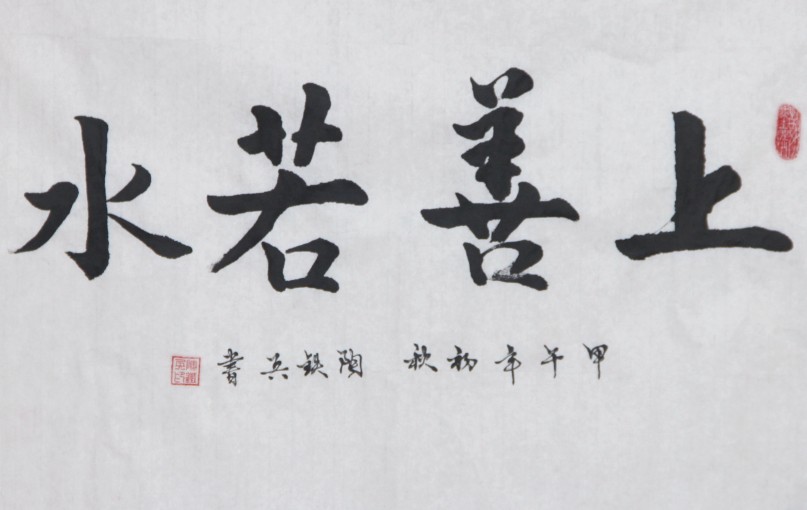 上善若水
甲午年初秋 陶鉄兵書